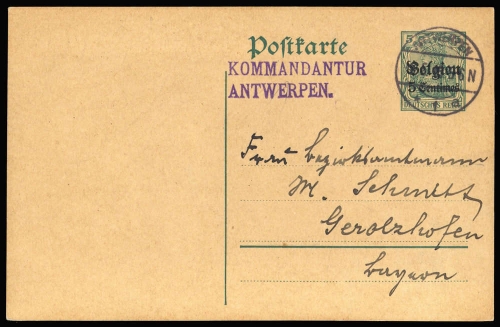 Postkarte
KOMMANDANTUR
ANTWERPEN.
5
ANTWERPEN
N
Belgien
5 Centimes
DEUTSCHES REICH
Frau Bezirksamtmann
M. Schmitt
Gerolzhofen
Bayern